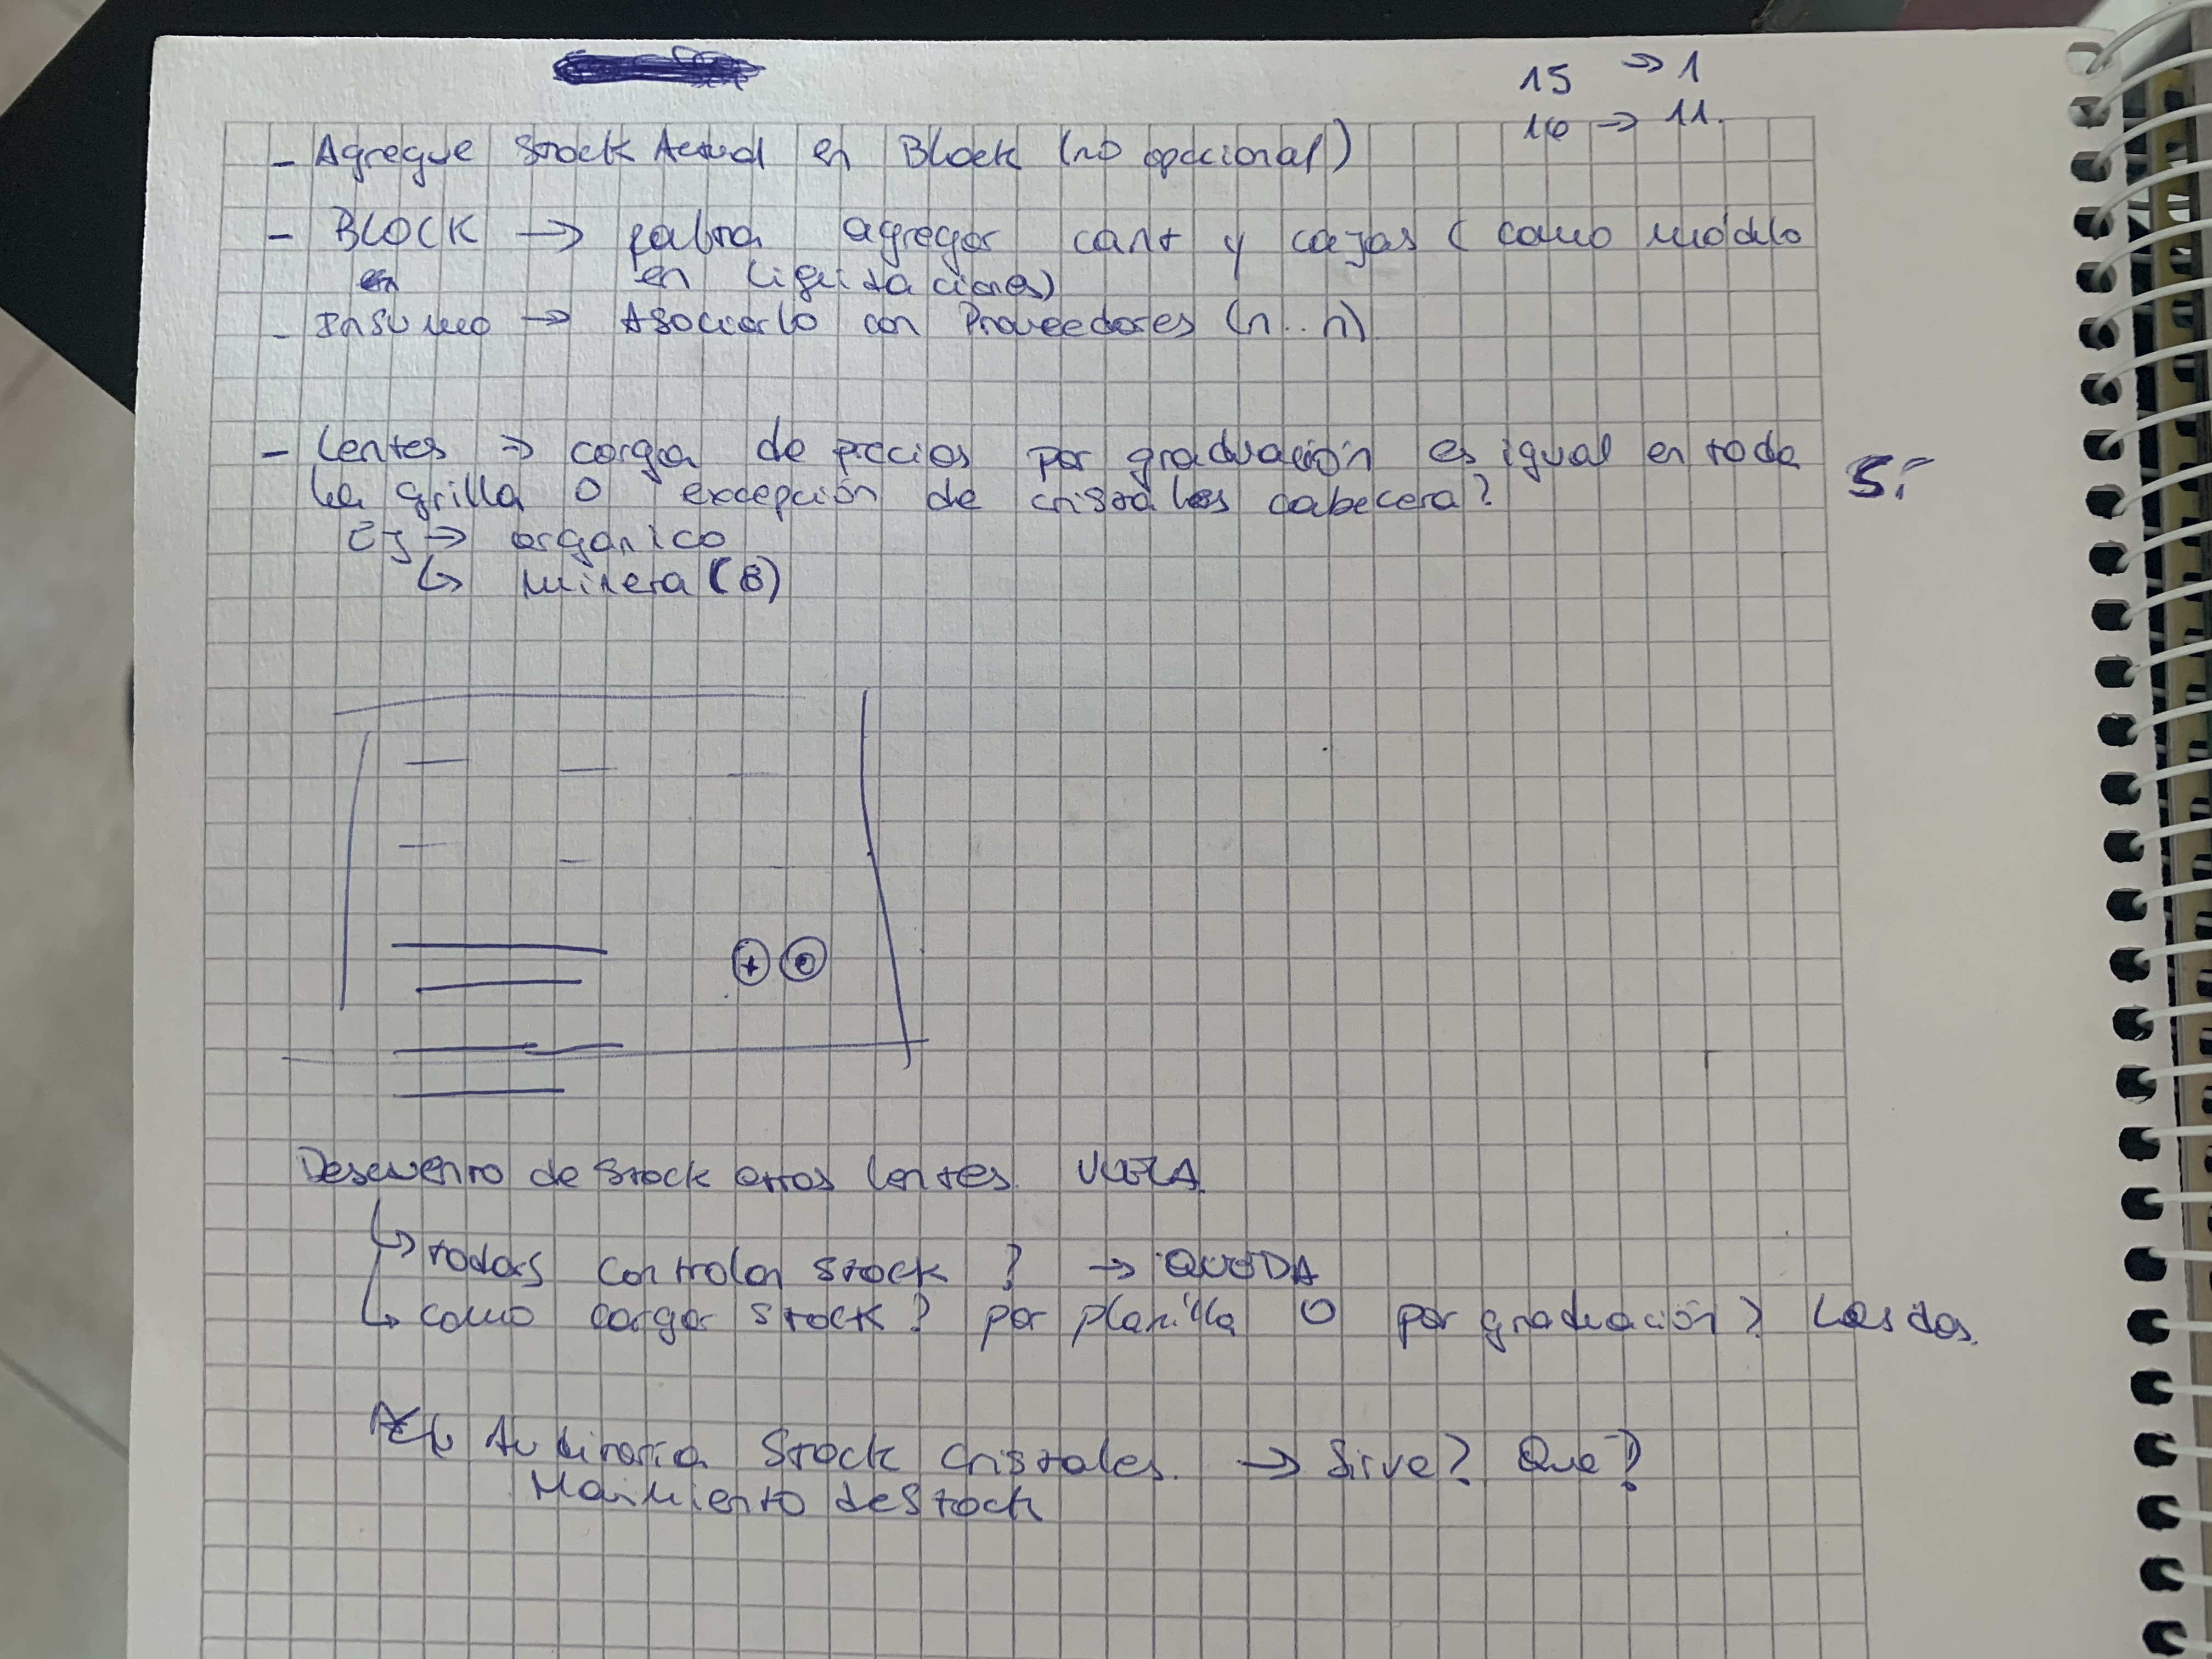 15 → 1
16 → 11.
- Agregue Stock Actual en Block (no opcional)
- BLOCK → falta agregar cant y cajas (como módulo
en en licitaciones)
- Insumo → Asociarlo con Proveedores (n..n)
- Lentes → carga de precios por graduación es igual en toda
la grilla o excepción de cristales cabecera? Si
EJ → organico
↳ Minera (B)
+
Descuento de Stock otros lentes.
↳ todas Controlan stock? → QUEDA
↳ como cargar stock? por planilla o por graduación? Las dos.
Stock Cristales. → Sirve? Que?
Movimiento de Stock